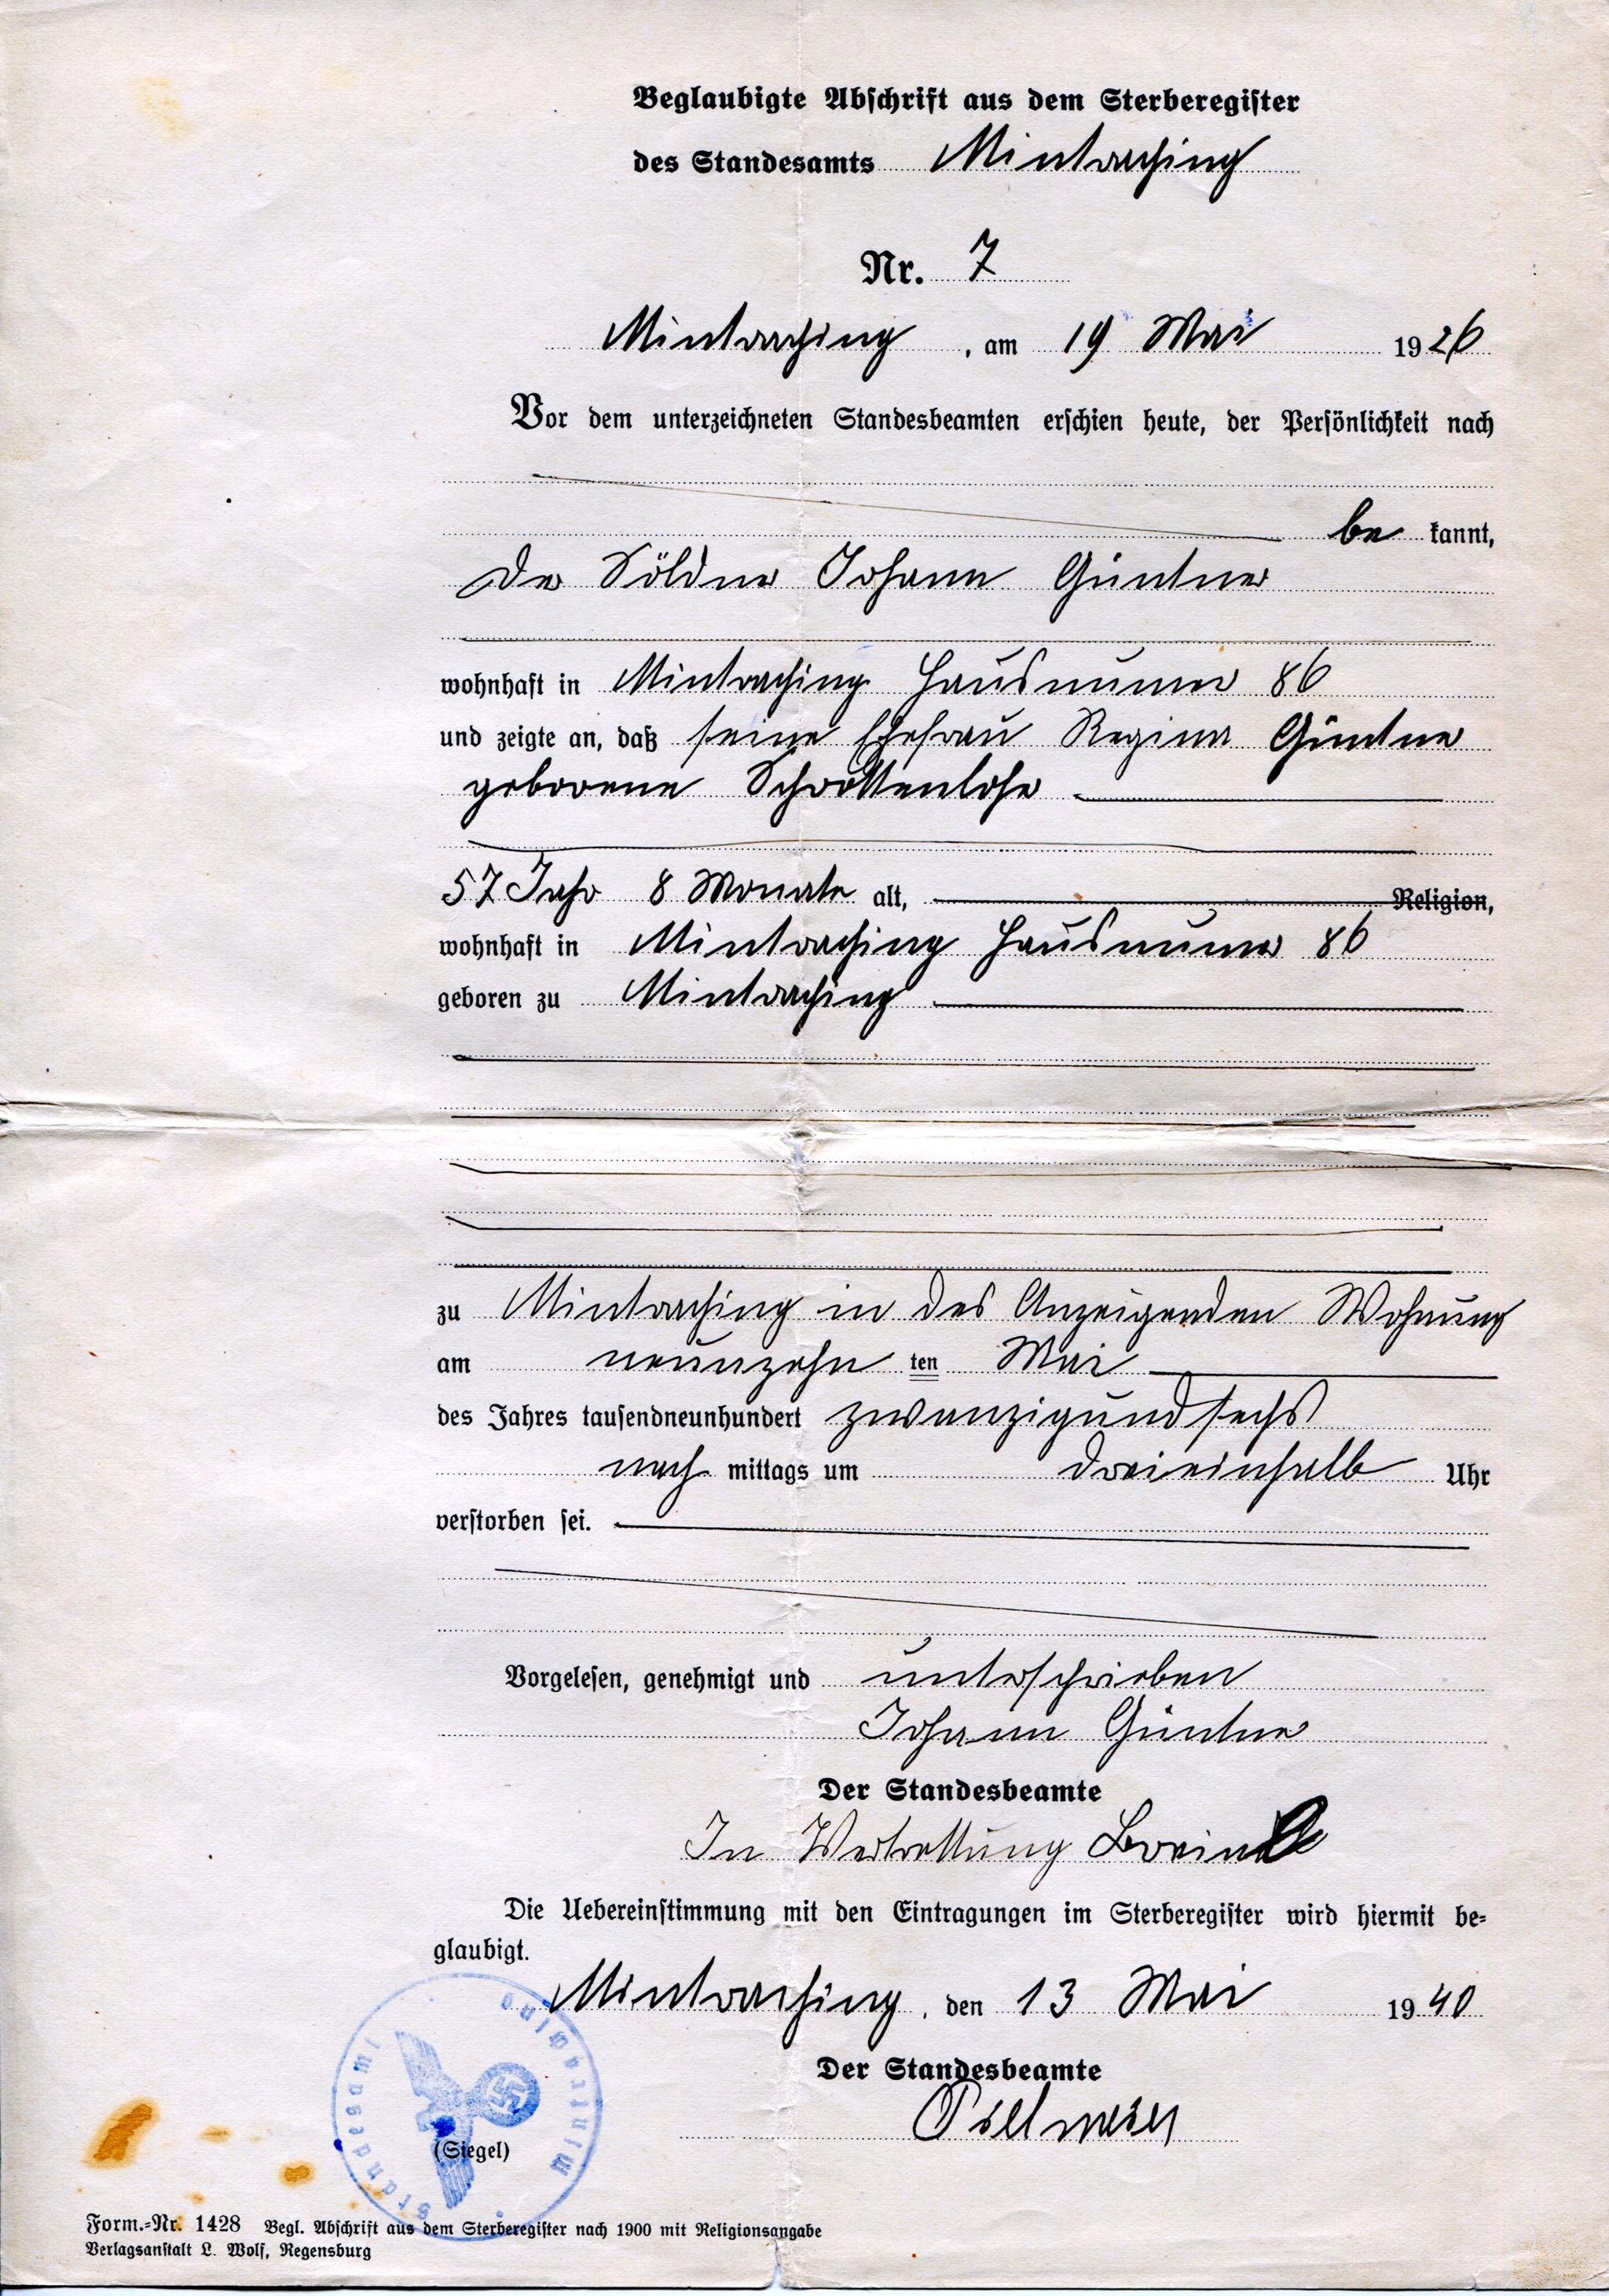 Beglaubigte Abschrift aus dem Sterberegister
des Standesamts Mintraching
Nr. 7
Mintraching, am 19 Mai 1926
Vor dem unterzeichneten Standesbeamten erschien heute, der Persönlichkeit nach
be kannt,
Der Söldner Johann Güntner
wohnhaft in Mintraching Hausnumer 86
und zeigte an, daß seine Ehefrau Regina Güntner
geborene Schrottenloher
57 Jahr 8 Monate alt, Religion,
wohnhaft in Mintraching Hausnumer 86
geboren zu Mintraching
zu Mintraching in des Anzeigenden Wohnung
am neunzehn ten Mai
des Jahres tausendneunhundert zwanzigundsechs
nach mittags um dreieinhalb Uhr
verstorben sei.
Vorgelesen, genehmigt und unterschrieben
Johann Güntner
Der Standesbeamte
In Vertrettung
Die Uebereinstimmung mit den Eintragungen im Sterberegister wird hiermit be-
glaubigt.
Mintraching, den 13 Mai 1940
Der Standesbeamte
(Siegel)
Standesamt Mintraching
Form.-Nr. 1428 Begl. Abschrift aus dem Sterberegister nach 1900 mit Religionsangabe
Verlagsanstalt L. Wolf, Regensburg